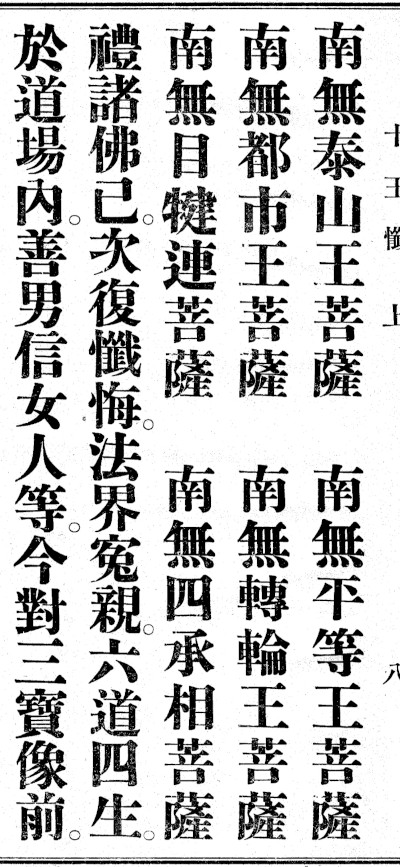 十王懺　上　八
南無泰山王菩薩　南無平等王菩薩
南無都市王菩薩　南無轉輪王菩薩
南無目犍連菩薩　南無四承相菩薩
禮諸佛已。次復懺悔。法界寃親。六道四生。
於道場內。善男信女人等。今對三寶像前。